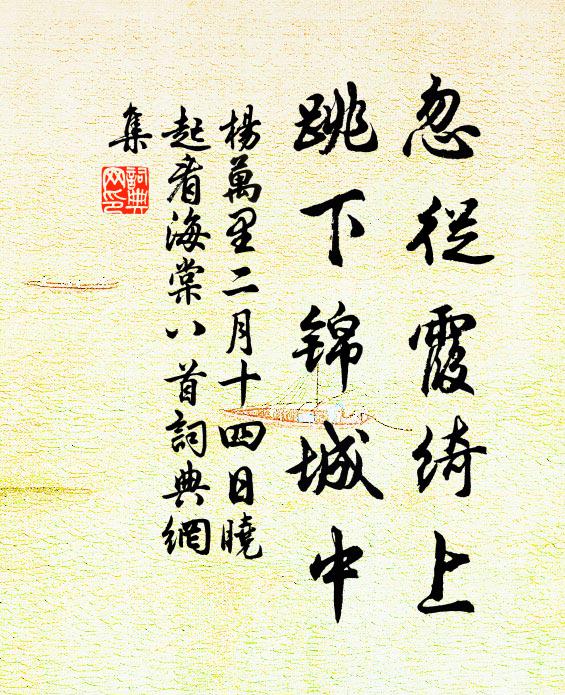 忽從霞綺上
跳下錦城中
楊萬里二月十四日曉
起看海棠八首詞典網
集
詞典
网印